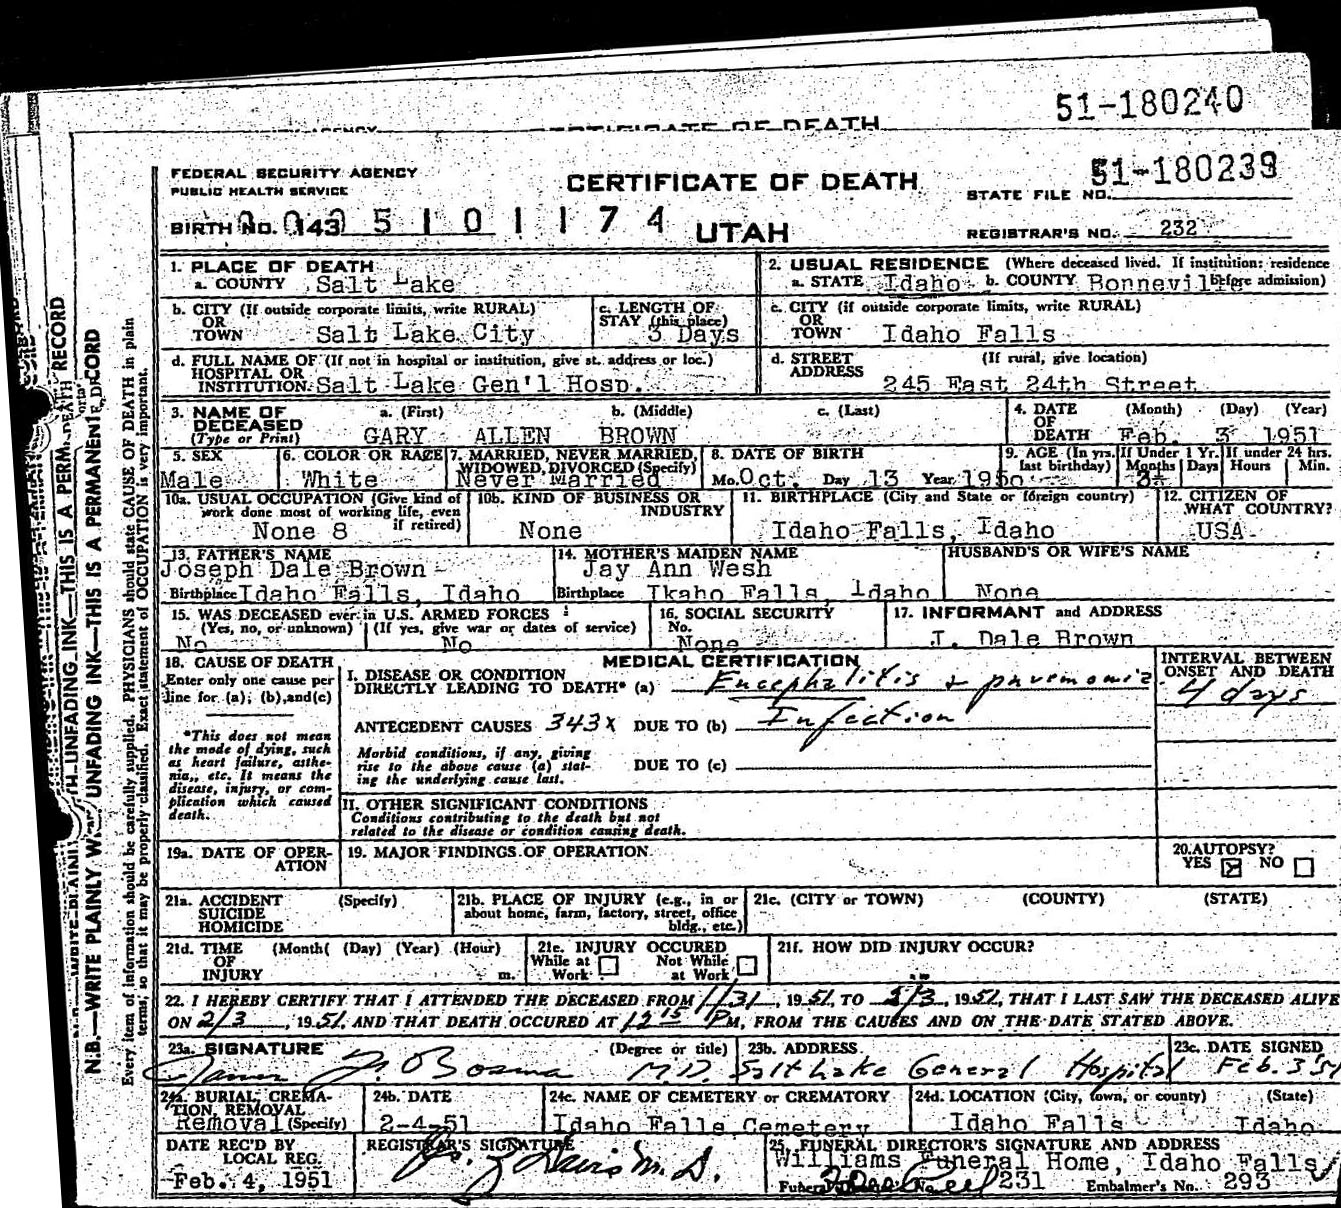 51-180240
CERTIFICATE OF DEATH
FEDERAL SECURITY AGENCY
PUBLIC HEALTH SERVICE
CERTIFICATE OF DEATH
51-180239
STATE FILE NO.
BIRTH NO. 143 5 1 0 1 1 7 4
UTAH
REGISTRAR'S NO. 232
1. PLACE OF DEATH
a. COUNTY Salt Lake
2. USUAL RESIDENCE (Where deceased lived. If institution: residence before admission)
a. STATE Idaho b. COUNTY Bonneville
b. CITY (If outside corporate limits, write RURAL)
OR
TOWN Salt Lake City
c. LENGTH OF
STAY (this place)
3 Days
c. CITY (if outside corporate limits, write RURAL)
OR
TOWN Idaho Falls
d. FULL NAME OF (If not in hospital or institution, give st. address or loc.)
HOSPITAL OR
INSTITUTION Salt Lake Gen'l Hosp.
d. STREET (If rural, give location)
ADDRESS
245 East 24th Street
3. NAME OF a. (First) b. (Middle) c. (Last)
DECEASED
(Type or Print) GARY ALLEN BROWN
4. DATE (Month) (Day) (Year)
OF
DEATH Feb. 3 1951
5. SEX
Male
6. COLOR OR RACE
White
7. MARRIED, NEVER MARRIED,
WIDOWED, DIVORCED (Specify)
Never Married
8. DATE OF BIRTH
Mo. Oct. Day 13 Year 1950
9. AGE (In yrs. last birthday) If Under 1 Yr. If under 24 hrs.
Months Days Hours Min.
10a. USUAL OCCUPATION (Give kind of
work done most of working life, even
if retired)
None 8
10b. KIND OF BUSINESS OR
INDUSTRY
None
11. BIRTHPLACE (City and State or foreign country)
Idaho Falls, Idaho
12. CITIZEN OF
WHAT COUNTRY?
USA
13. FATHER'S NAME
Joseph Dale Brown
Birthplace Idaho Falls, Idaho
14. MOTHER'S MAIDEN NAME
Jay Ann Wesh
Birthplace Ikaho Falls, Idaho
HUSBAND'S OR WIFE'S NAME
None
15. WAS DECEASED ever in U.S. ARMED FORCES
(Yes, no, or unknown) (If yes, give war or dates of service)
No No
16. SOCIAL SECURITY
No.
None
17. INFORMANT and ADDRESS
J. Dale Brown
18. CAUSE OF DEATH
Enter only one cause per
line for (a), (b), and (c)
*This does not mean
the mode of dying, such
as heart failure, asthe-
nia, etc. It means the
disease, injury, or com-
plication which caused
death.
MEDICAL CERTIFICATION
I. DISEASE OR CONDITION
DIRECTLY LEADING TO DEATH* (a) Encephalitis + pneumonia
ANTECEDENT CAUSES 343x DUE TO (b) Infection
Morbid conditions, if any, giving
rise to the above cause (a) stat-
ing the underlying cause last.
DUE TO (c)
II. OTHER SIGNIFICANT CONDITIONS
Conditions contributing to the death but not
related to the disease or condition causing death.
INTERVAL BETWEEN
ONSET AND DEATH
4 days
19a. DATE OF OPER-
ATION
19. MAJOR FINDINGS OF OPERATION
20. AUTOPSY?
YES NO
21a. ACCIDENT (Specify)
SUICIDE
HOMICIDE
21b. PLACE OF INJURY (e.g., in or
about home, farm, factory, street, office
bldg., etc.)
21c. (CITY or TOWN) (COUNTY) (STATE)
21d. TIME (Month( (Day) (Year) (Hour)
OF
INJURY m.
21e. INJURY OCCURED
While at Not While
Work at Work
21f. HOW DID INJURY OCCUR?
22. I HEREBY CERTIFY THAT I ATTENDED THE DECEASED FROM 1/31, 1951, TO 2/3, 1951, THAT I LAST SAW THE DECEASED ALIVE
ON 2/3, 1951, AND THAT DEATH OCCURED AT 12 15 PM, FROM THE CAUSES AND ON THE DATE STATED ABOVE.
23a. SIGNATURE (Degree or title)
M.D.
23b. ADDRESS
Salt Lake General Hospital
23c. DATE SIGNED
Feb. 3 '51
24a. BURIAL, CREMA-
TION, REMOVAL
Removal (Specify)
24b. DATE
2-4-51
24c. NAME OF CEMETERY or CREMATORY
Idaho Falls Cemetery
24d. LOCATION (City, town, or county) (State)
Idaho Falls Idaho
DATE REC'D BY
LOCAL REG.
Feb. 4, 1951
REGISTRAR'S SIGNATURE
Davis M.D.
25. FUNERAL DIRECTOR'S SIGNATURE AND ADDRESS
Williams Funeral Home, Idaho Falls
231 Embalmer's No. 293
N.B.—WRITE PLAINLY UNFADING INK—THIS IS A PERMANENT RECORD
Every item of information should be carefully supplied. PHYSICIANS should state CAUSE OF DEATH in plain
terms, so that it may be properly classified. Exact statement of OCCUPATION is very important.